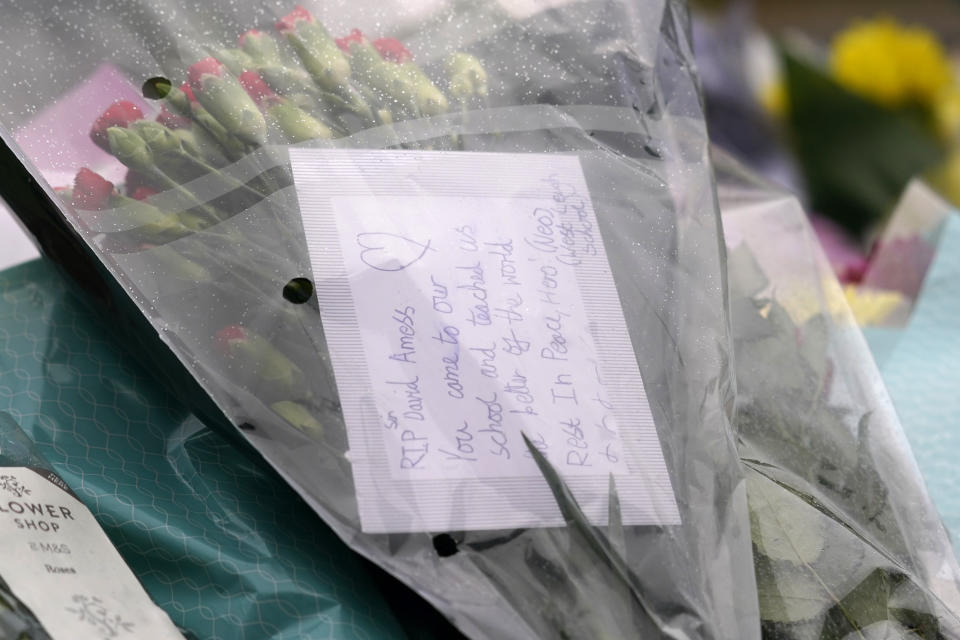 RIP Sir David Amess
You come to our
school and teached us
better of the world
Rest In Peace, Hero! (Neo)
(West Leigh
School)
LOWER
SHOP
M&S
Roses